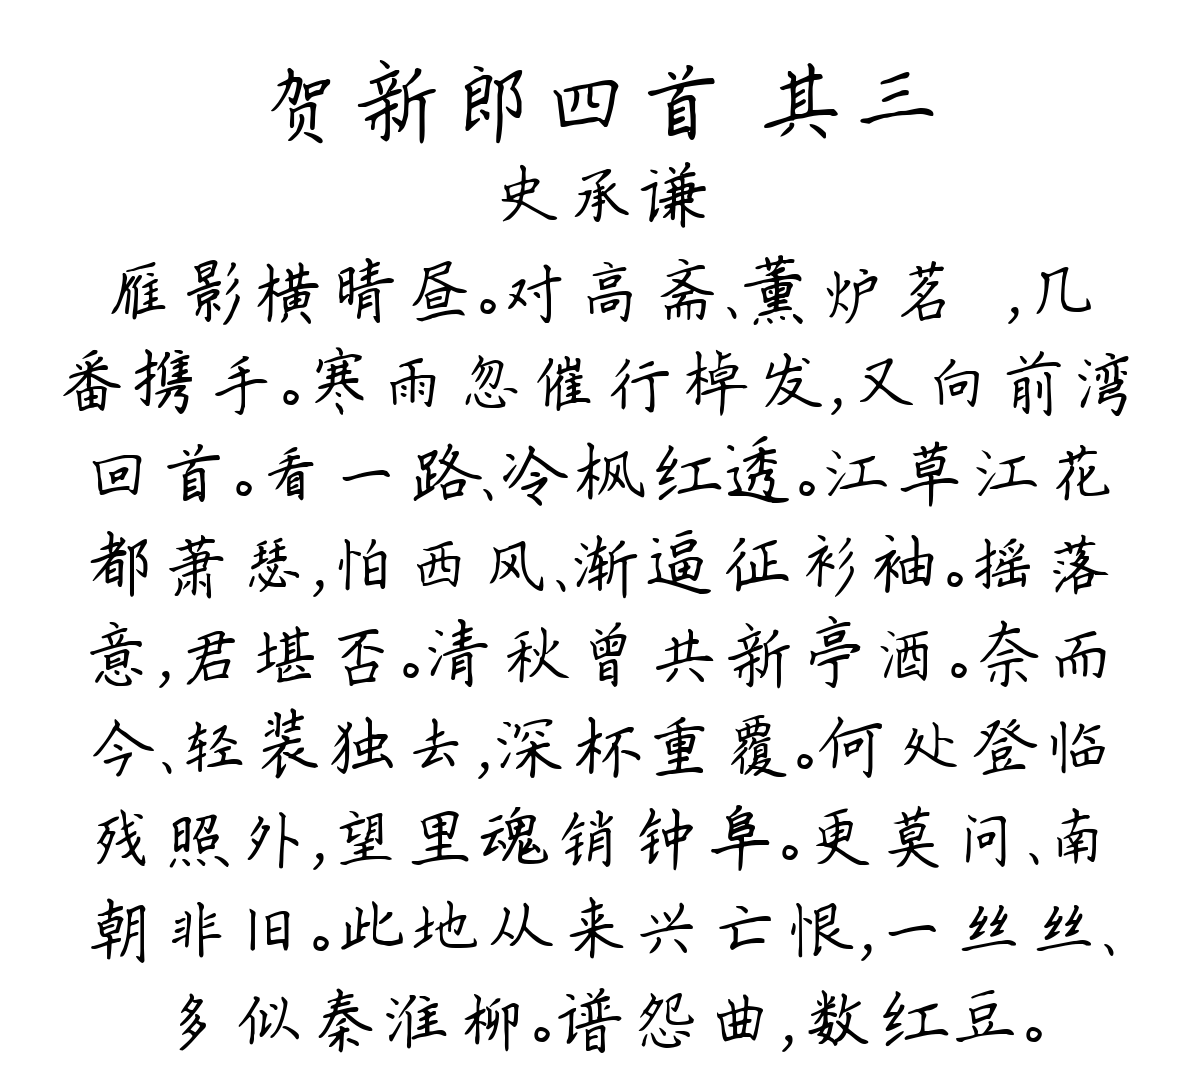 贺新郎四首 其三
史承谦
雁影横晴昼。对高斋、薰炉茗 ,几
番携手。寒雨忽催行棹发,又向前湾
回首。看一路、冷枫红透。江草江花
都萧瑟,怕西风、渐逼征衫袖。摇落
意,君堪否。清秋曾共新亭酒。奈而
今、轻装独去,深杯重覆。何处登临
残照外,望里魂销钟阜。更莫问、南
朝非旧。此地从来兴亡恨,一丝丝、
多似秦淮柳。谱怨曲,数红豆。